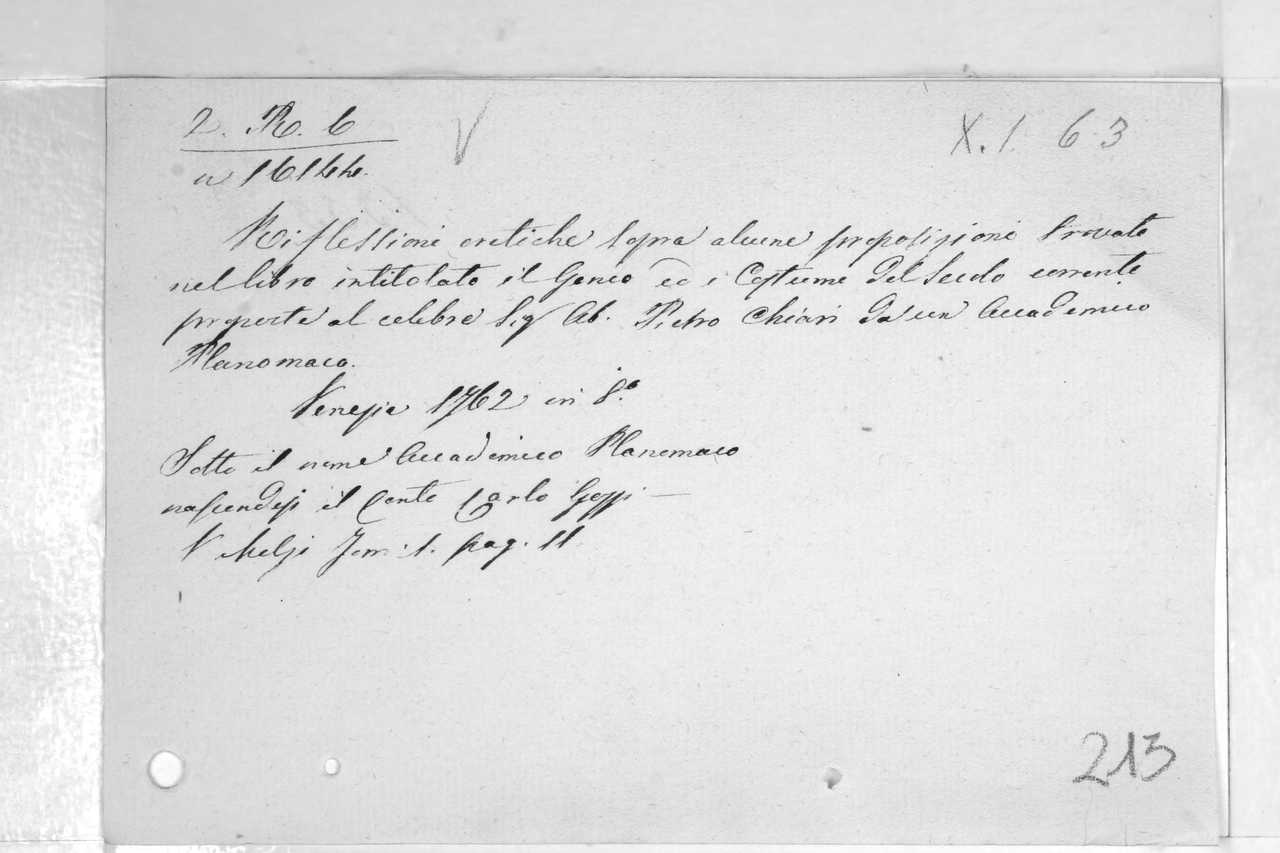 2. R. 6
a 16144.
X. 1. 63
Riflessioni critiche sopra alcune proposizioni trovate
nel libro intitolato il Genio ed i Costume del Secolo corrente
proposte al celebre Sig Ab. Pietro Chiari da un Accademico
Planomaco.
Venezia 1762 in 8.°
Sotto il nome Accademico Planomaco
nascondesi il Conte Carlo Gozzi —
V Melzi Tom: 1. pag. 11
213